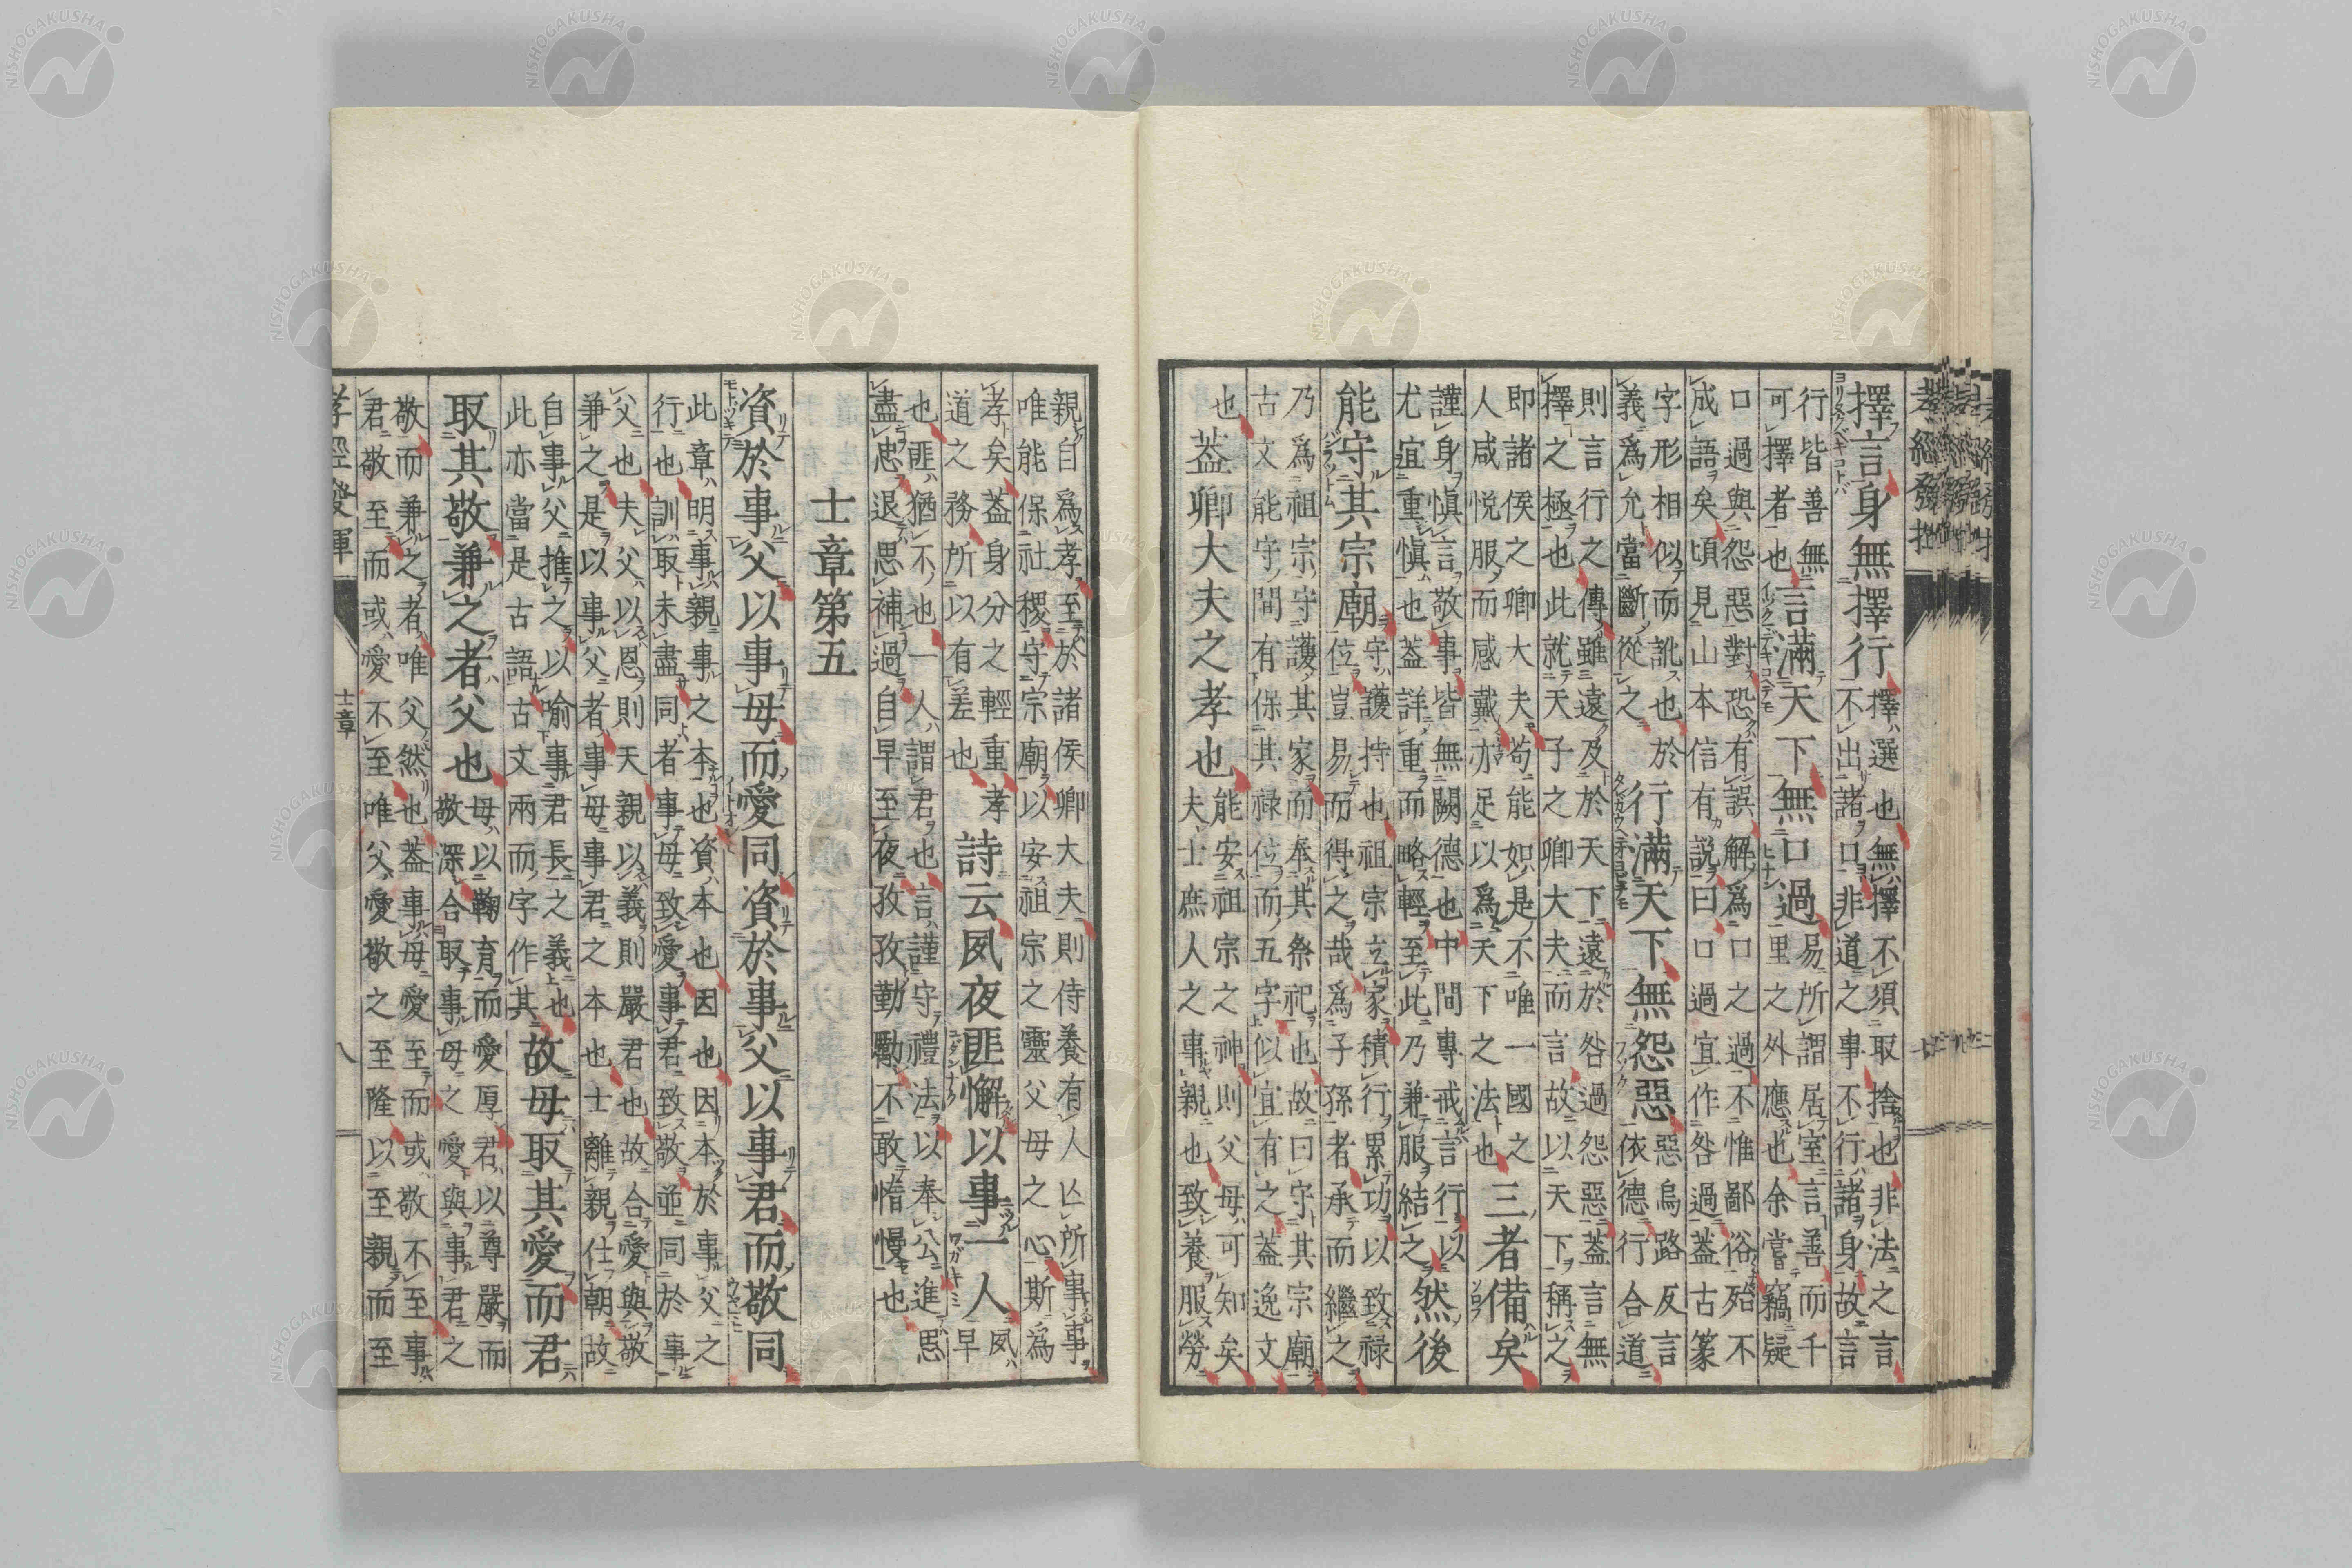 孝經發揮
擇言身無擇行
擇選也無擇不須取捨也非法之言
不出諸口非道之事不行諸身故言
行皆善無
可擇者也
言滿天下無口過
易所謂居室言善而千
里之外應也余嘗竊疑
口過與怨惡對恐有誤解爲口之過不惟鄙俗殆不
成語矣頃見山本信有説曰口過宜作咎過蓋古篆
字形相似而訛也於
義爲允當斷從之
行滿天下無怨惡
惡烏路反言
依德行合道
則言行之傳雖遠及於天下遠於咎過怨惡蓋言無
擇之極也此就天子之卿大夫而言故以天下稱之
即諸侯之卿大夫苟能如是不唯一國之
人咸悦服而感戴亦足以爲天下之法也
三者備矣
謹身慎言敬事皆無闕德也中間專戒言行以
尤宜重慎也蓋詳重而略輕至此乃兼服結之
然後
能守其宗廟
守護持也祖宗立家積行累功以致禄
位豈易而得之哉爲子孫者承而繼之
乃爲祖宗守護其家而奉其祭祀也故曰守其宗廟
古文能守間有保其禄位而五字似宜有之蓋逸文
也
蓋卿大夫之孝也
能安祖宗之神則父母可知矣
夫士庶人之事親也致養服勞
親自爲孝至於諸侯卿大夫則侍養有人亾所事事
唯能保社稷守宗廟以安祖宗之靈父母之心斯爲
孝矣蓋身分之輕重孝
道之務所以有差也
詩云夙夜匪懈以事一人
夙
早
也匪猶不也一人謂君也言謹守禮法以奉公進思
盡忠退思補過自早至夜孜孜勤勵不敢惰慢也
士章第五
資於事父以事母而愛同資於事父以事君而敬同
此章明事親事之本也資本也因也因本於事父之
行也訓取未盡同者事母致愛事君致敬並同於事
父也夫父以恩則天親以義則嚴君也故合愛與敬
兼之是以事父者事母事君之本也士離親仕朝故
自事父推之以喻事君長之義也
此亦當是古語古文兩而字作其
故母取其愛而君
取其敬兼之者父也
母以鞠育而愛厚君以尊嚴而
敬深合取事母之愛與事君之
敬而兼之者唯父然也蓋事母愛至而或敬不至事
君敬至而或愛不至唯父愛敬之至隆以至親而至
孝經發揮
士章
八
NISHOGAKUSHA